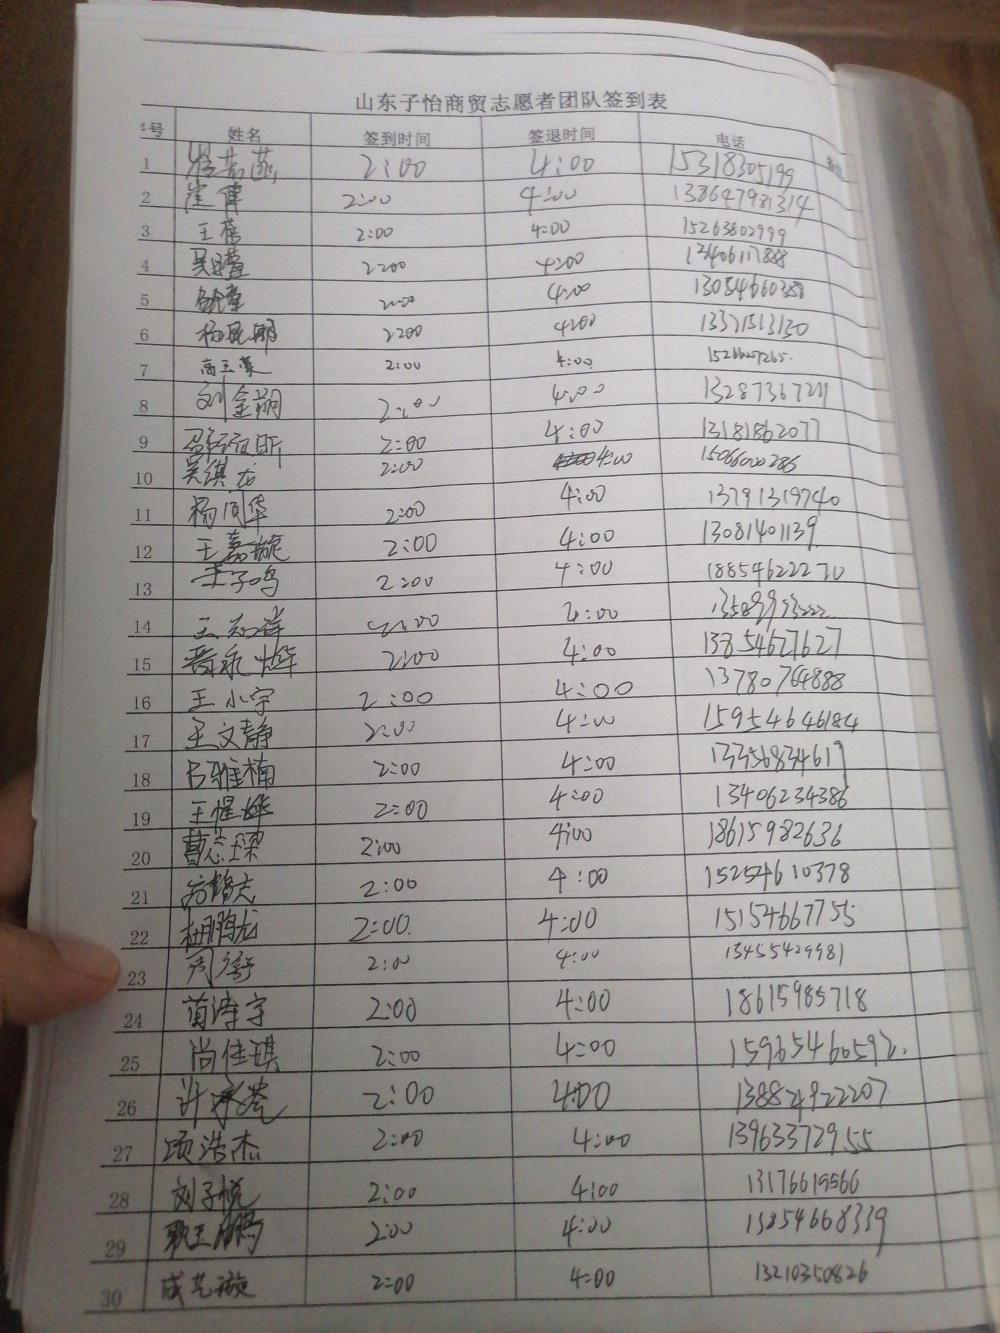 山东子怡商贸志愿者团队签到表
号 姓名 签到时间 签退时间 电话
1 2:00 4:00 15318305199
2 崔伟 2:00 4:00 138647981314
3 王蓓 2:00 4:00 15263802999
4 2:00 4:00 13406117888
5 2:00 4:00 13054660388
6 杨昆朋 2:00 4:00 13371513130
7 高玉 2:00 4:00
8 刘金翊 2:00 4:00 13287367211
9 2:00 4:00 13181862077
10 吴祺龙 2:00 4:00 15066000286
11 杨同华 2:00 4:00 13791319740
12 王嘉璇 2:00 4:00 13081401139
13 王子鸣 2:00 4:00 18854622270
14 王志祥 2:00 4:00 13589993222
15 2:00 4:00 13854627627
16 王小宇 2:00 4:00 13780764888
17 王文静 2:00 4:00 15954646184
18 吕雅楠 2:00 4:00 13356834619
19 王惺烨 2:00 4:00 13406234386
20 曹志梁 2:00 4:00 18615982636
21 2:00 4:00 15254610378
22 杜鹏龙 2:00. 4:00 15154667755
23 2:00 4:00 13455429981
24 2:00 4:00 18615985718
25 尚佳琪 2:00 4:00 15965460592.
26 许 2:00 4:00 13884922207
27 项浩杰 2:00 4:00 13963372955
28 刘子悦 2:00 4:00 13176619566
29 2:00 4:00 13854668339
30 成艺璇 2:00 4:00 13210350826